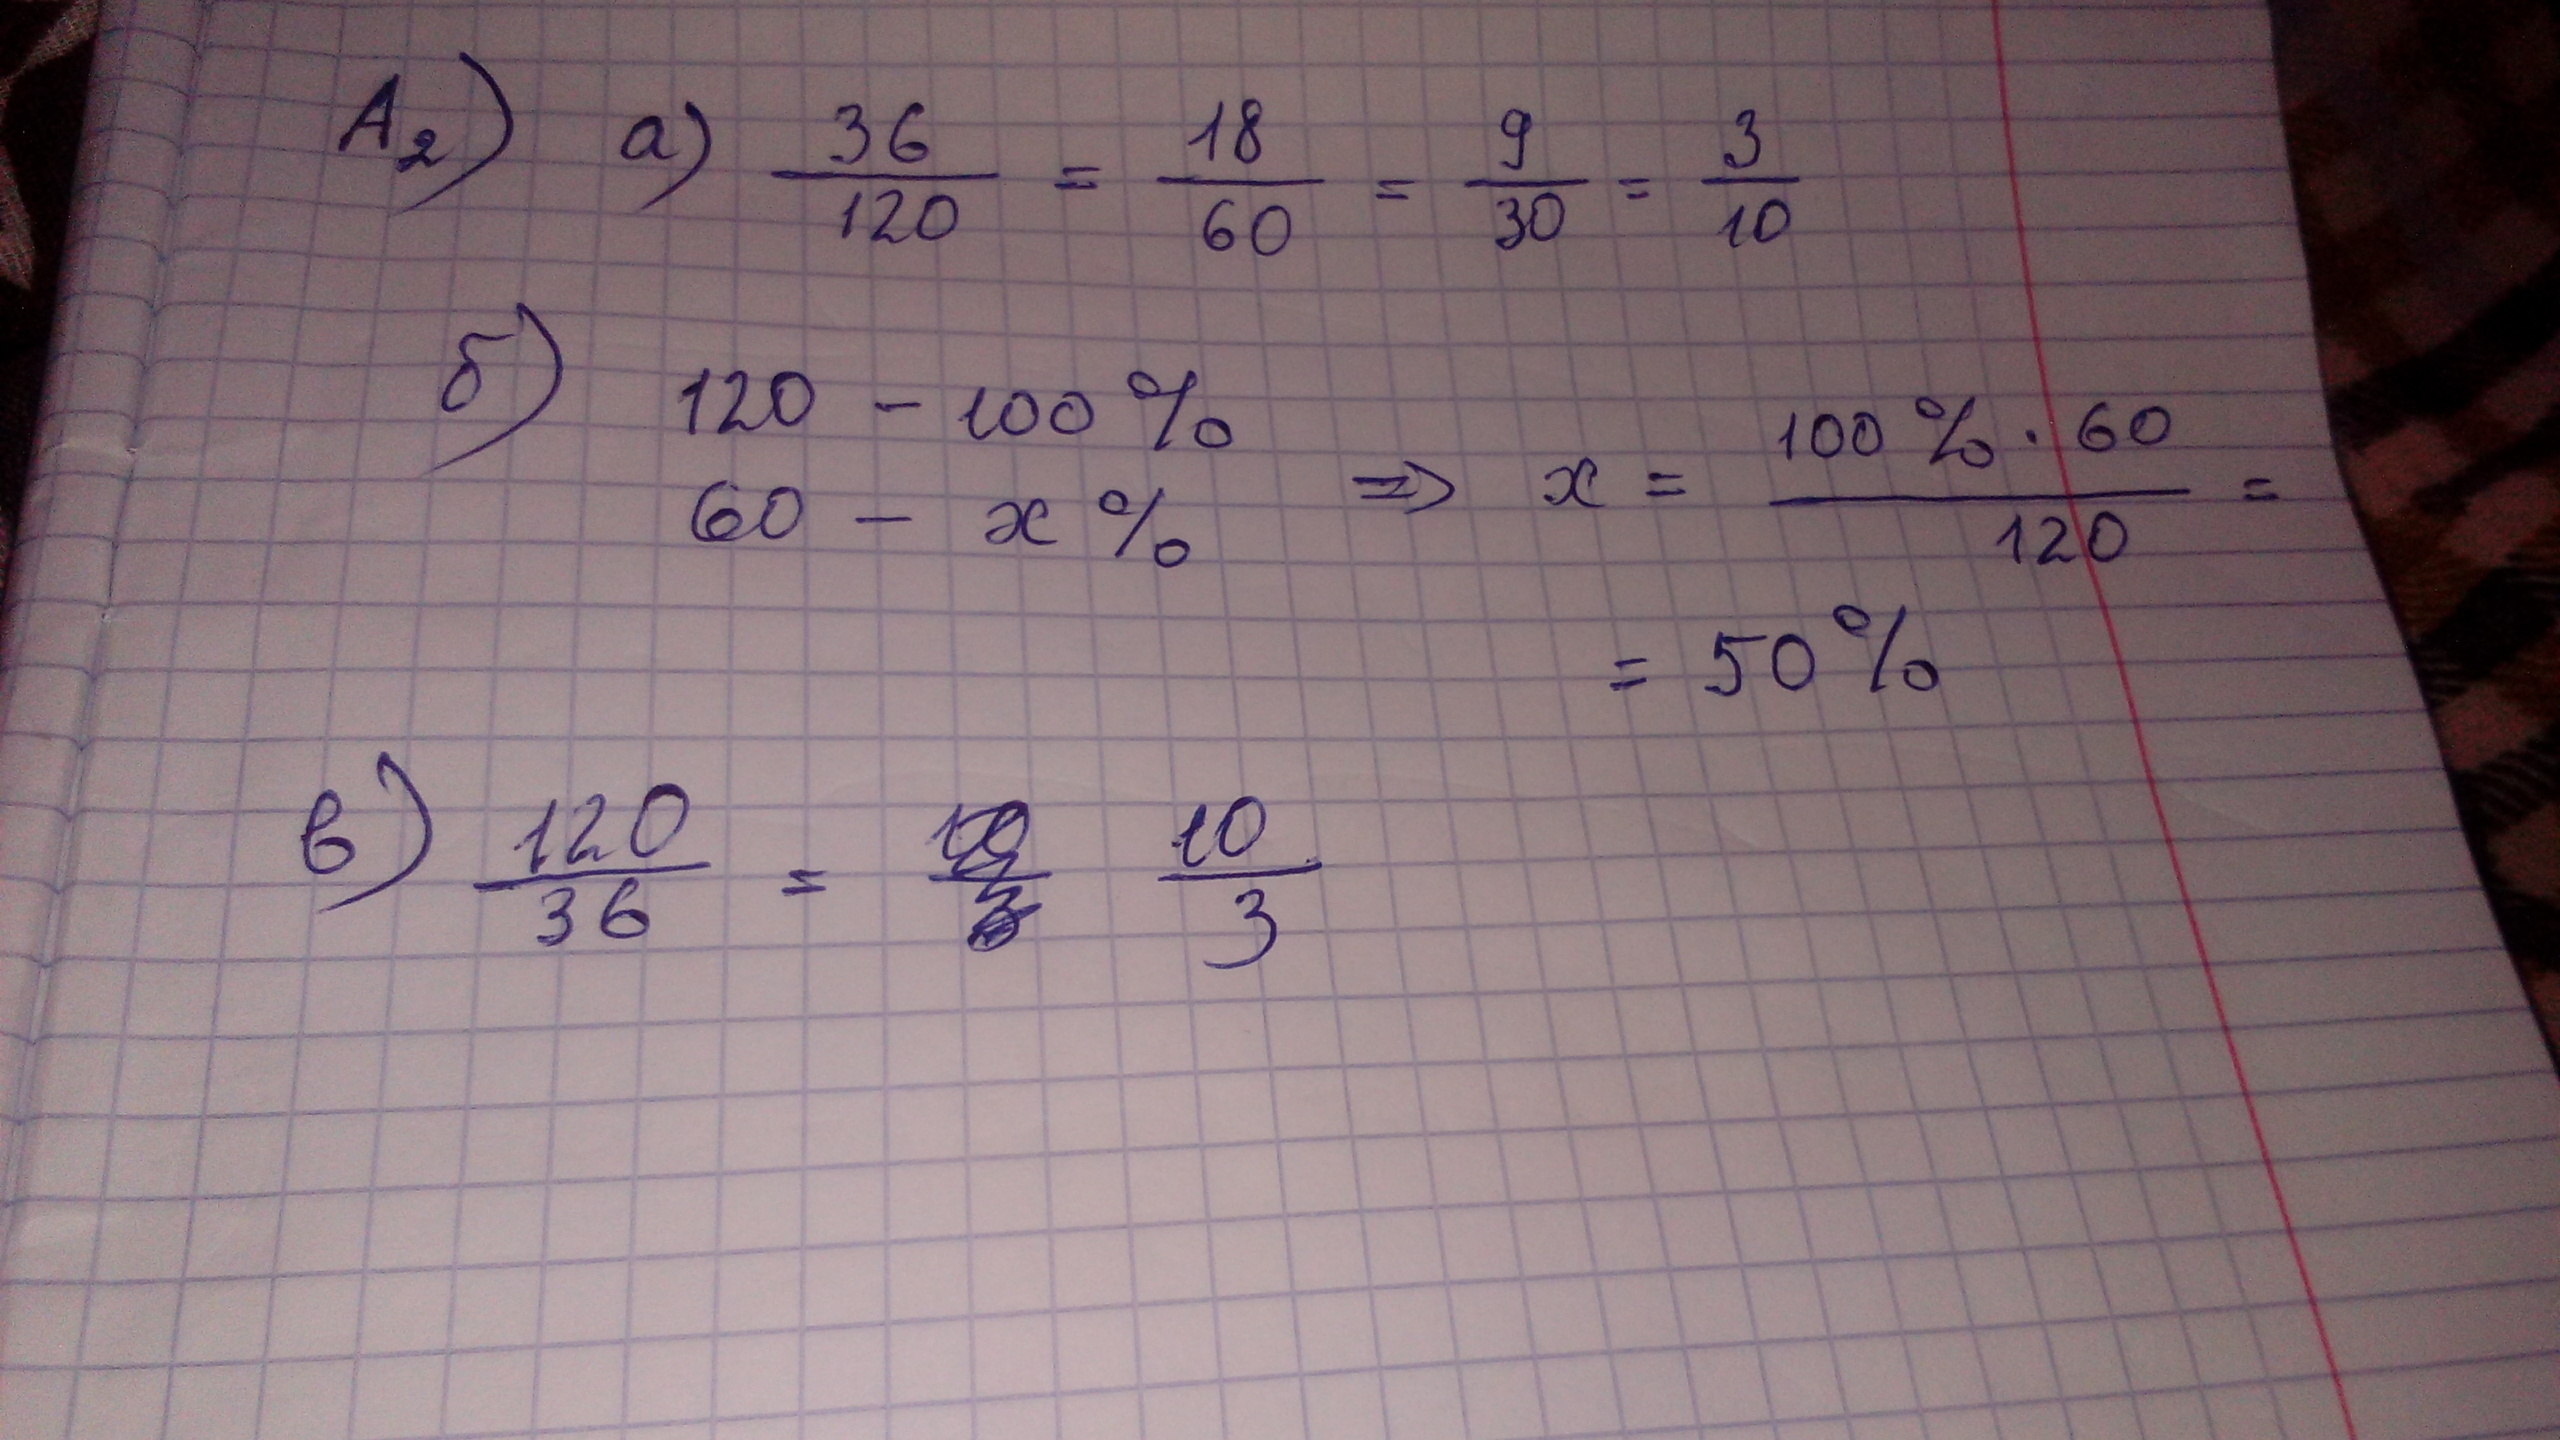 A₂) а) 36/120 = 18/60 = 9/30 = 3/10
б) 120 – 100 %
60 – x % => x = 100 % · 60 / 120 =
= 50 %
в) 120/36 = 10/3